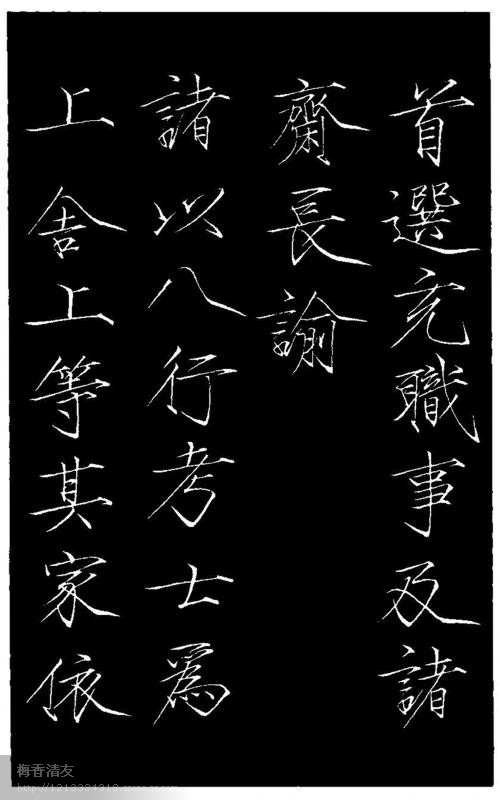 首選充職事及諸
齋長諭
諸以八行考士為
上舍上等其家依
梅香清友